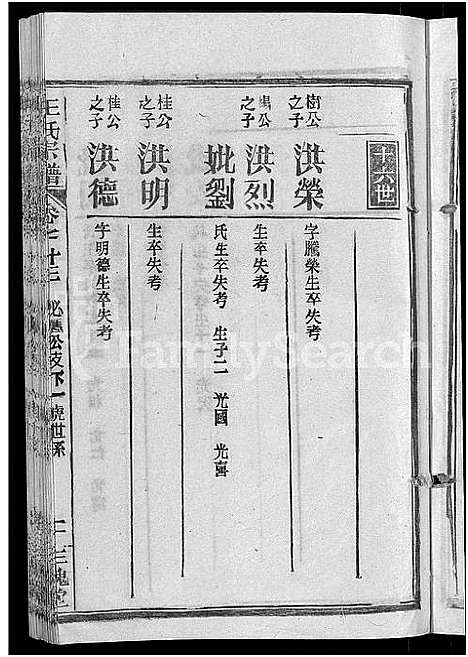 十六世
樹公之子 洪榮 字騰榮生卒失考
公之子 洪烈 生卒失考
妣劉 氏生卒失考 生子二 光國 光喜
桂公之子 洪明 生卒失考
桂公之子 洪德 字明德生卒失考
王氏宗譜 公支下 世系 三槐堂
FamilySearch